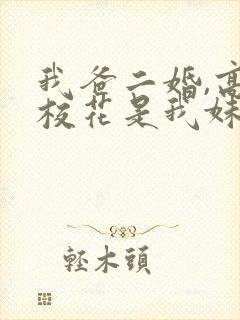 我爸二婚,高
校花是我妹
輕木頭